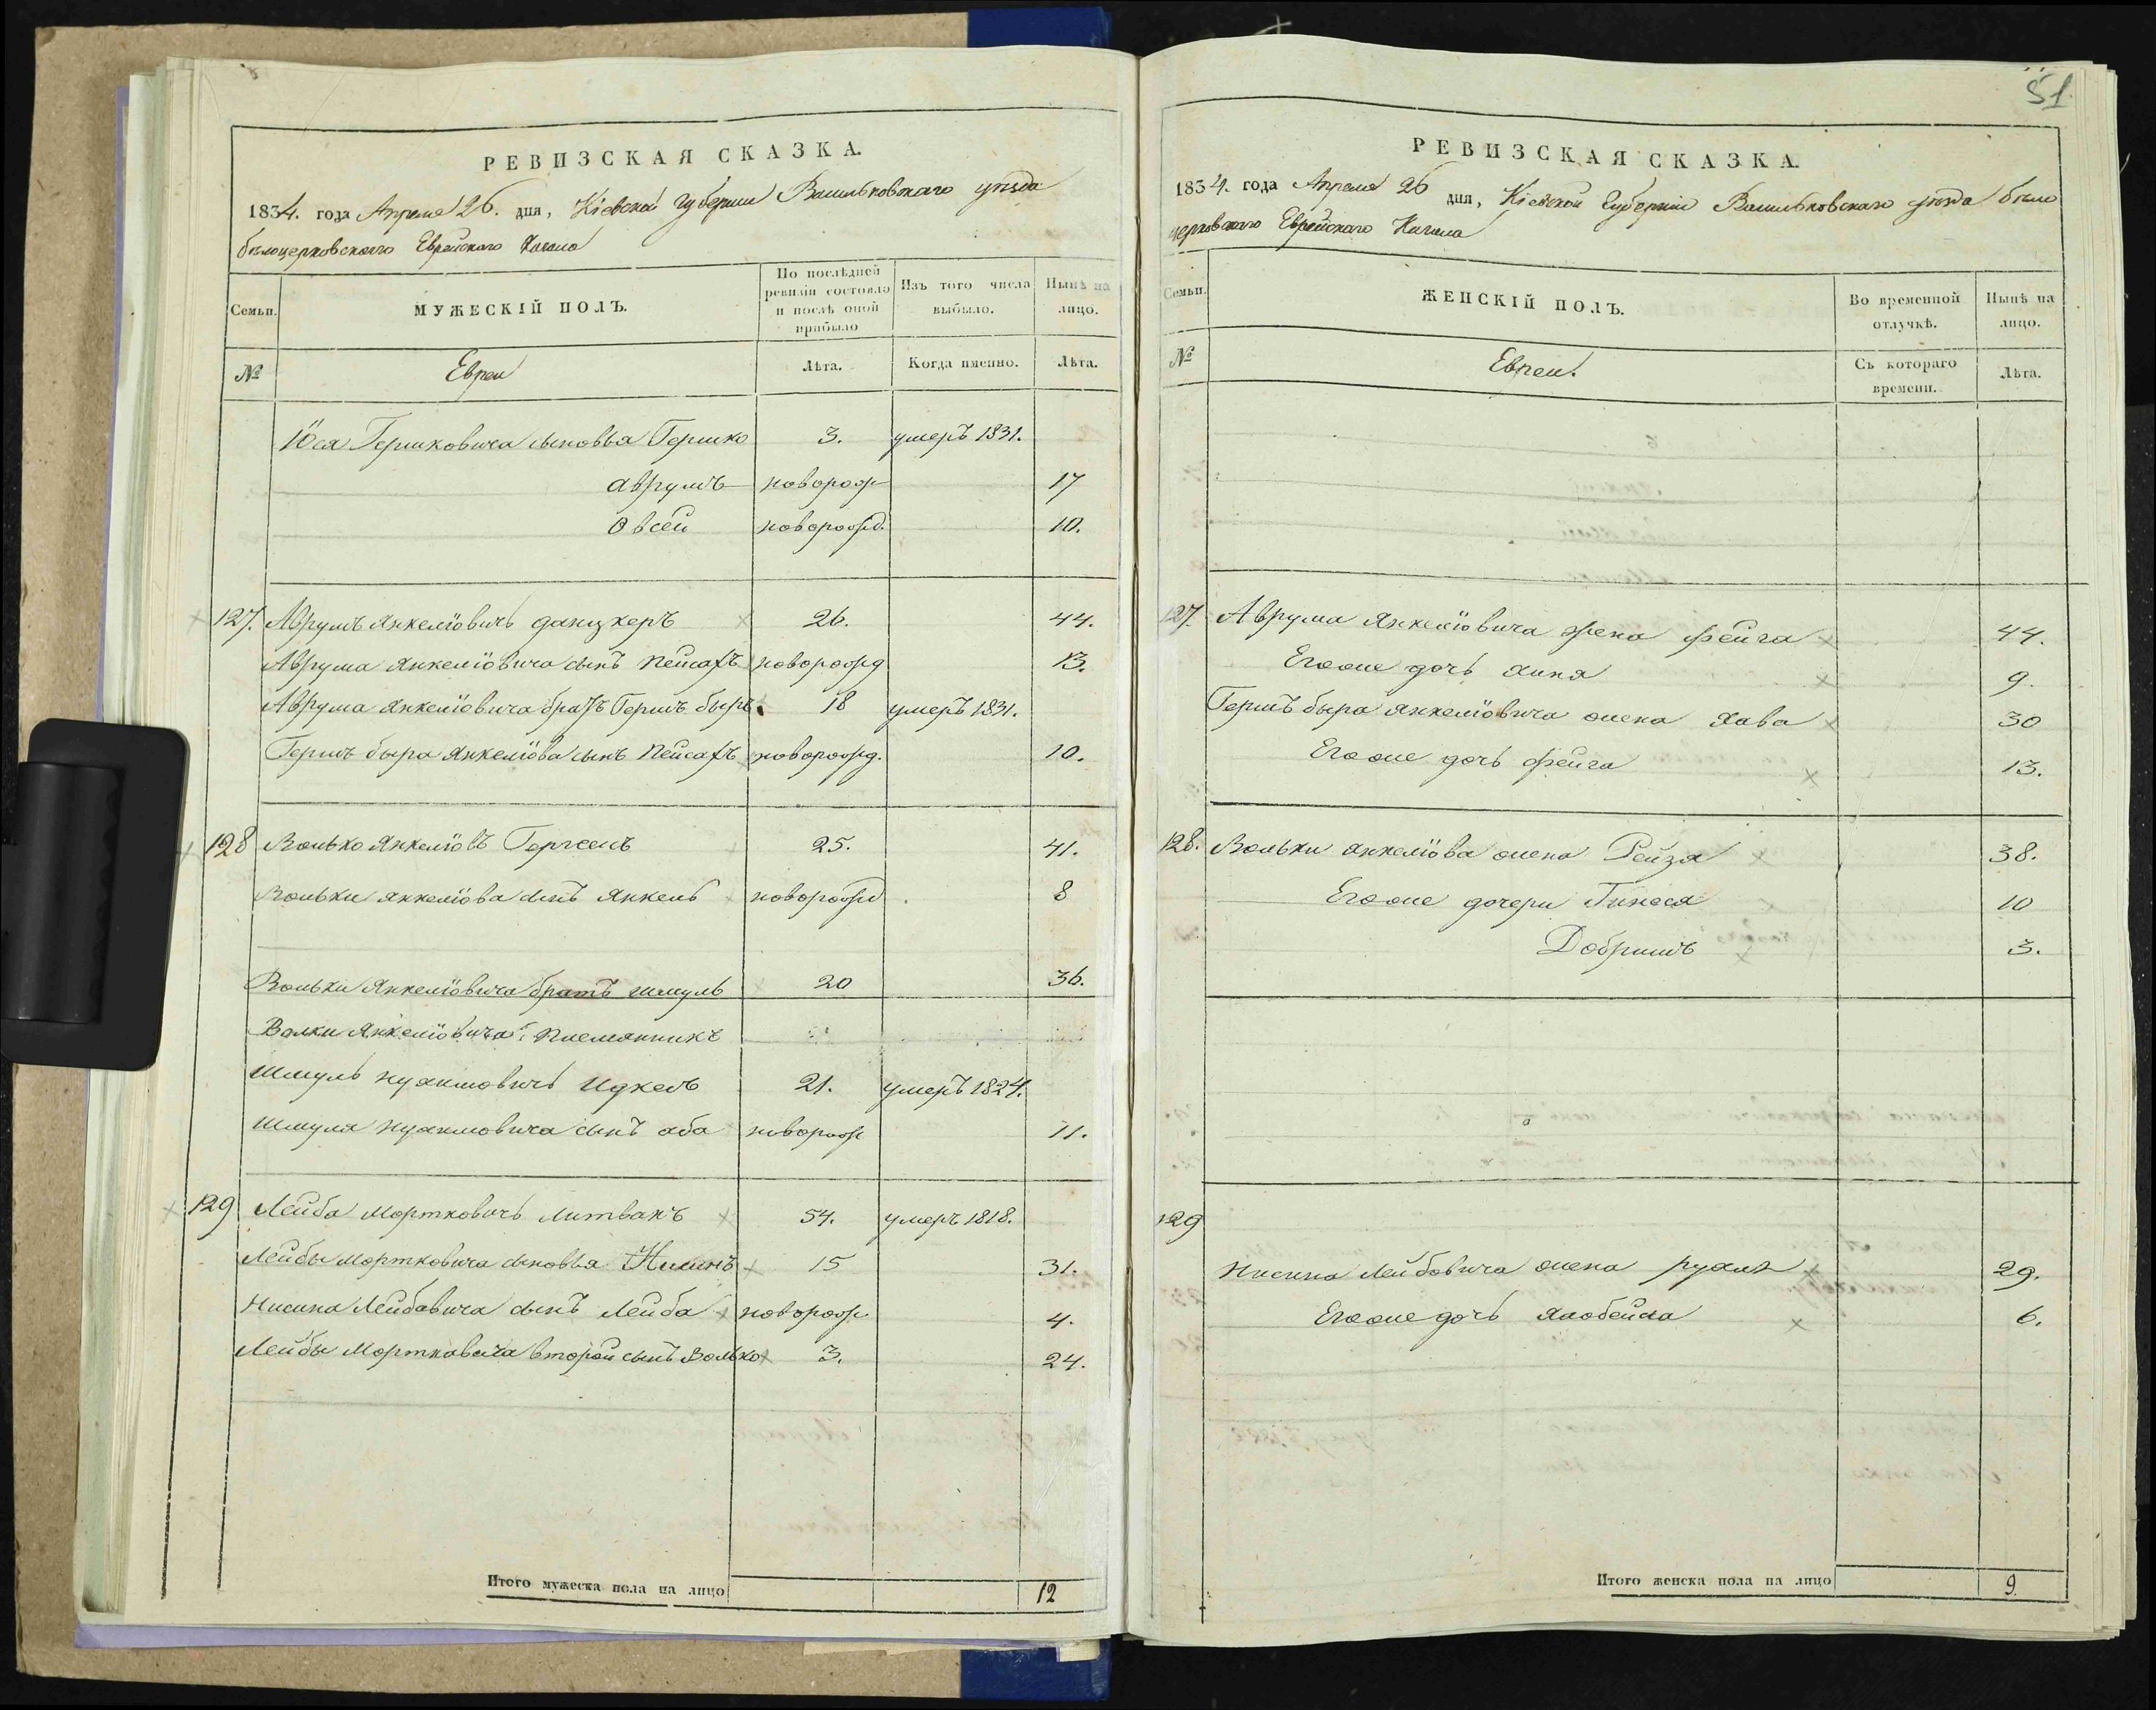 РЕВИЗСКАЯ СКАЗКА.
1834. года Апреля 26. дня, Кіевской Губерніи Васильковскаго уѣзда
бѣлоцерковскаго Еврейскаго Кагала
Семьи.
МУЖЕСКІЙ ПОЛЪ.
По послѣдней ревизіи состояло и послѣ оной прибыло
Изъ того числа выбыло.
Нынѣ на лицо.
№
Евреи
Лѣта.
Когда именно.
Лѣта.
Юся Гершковича сыновья Гершко 3. умеръ 1831.
аврумъ новорож 17
Овсей новорожд. 10.
127. Аврумъ Янкеліовичь данцкеръ 26. 44.
Аврума Янкеліовича сынъ Пейсахъ новорожд 13.
Аврума Янкеліовича братъ Гершъ быръ 18 умеръ 1831.
Гершъ быра Янкеліова сынъ Пейсахъ новорожд. 10.
128 Волько Янкеліовъ 25. 41.
Вольки Янкеліова сынъ Янкель новорожд 8
Вольки Янкеліовича братъ шмуль 20 36.
Валки Янкеліовича племянникъ
Шмуль нухимовичь 21. умеръ 1824.
Шмуля нухимовича сынъ аба новорож 11.
129 Лейба Мортковичь Литвакъ 54. умеръ 1818.
Лейбы Мортковича сыновья Нисинъ 15 31.
Нисина Лейбовича сынъ Лейба новорож 4.
Лейбы Мортковича второй сынъ Волько 3. 24.
Итого мужеска пола на лицо 12
51
РЕВИЗСКАЯ СКАЗКА.
1834. года Апреля 26 дня, Кіевской Губерніи Васильковскаго уѣзда бѣло
церковскаго Еврейскаго Кагала
Семьи.
ЖЕНСКІЙ ПОЛЪ.
Во временной отлучкѣ.
Нынѣ на лицо.
№
Евреи.
Съ котораго времени.
Лѣта.
127. Аврума Янкеліовича жена фейга 44.
Егоже дочь 9.
Гершъ быра Янкеліовича жена Хава 30
Егоже дочь фейга 13.
128. Вольки Янкеліова жена Рейзя 38.
Егоже дочери Гинеся 10
Добришъ 3.
129
Нисина Лейбовича жена рухля 29.
Егоже дочь 6.
Итого женска пола на лицо 9.